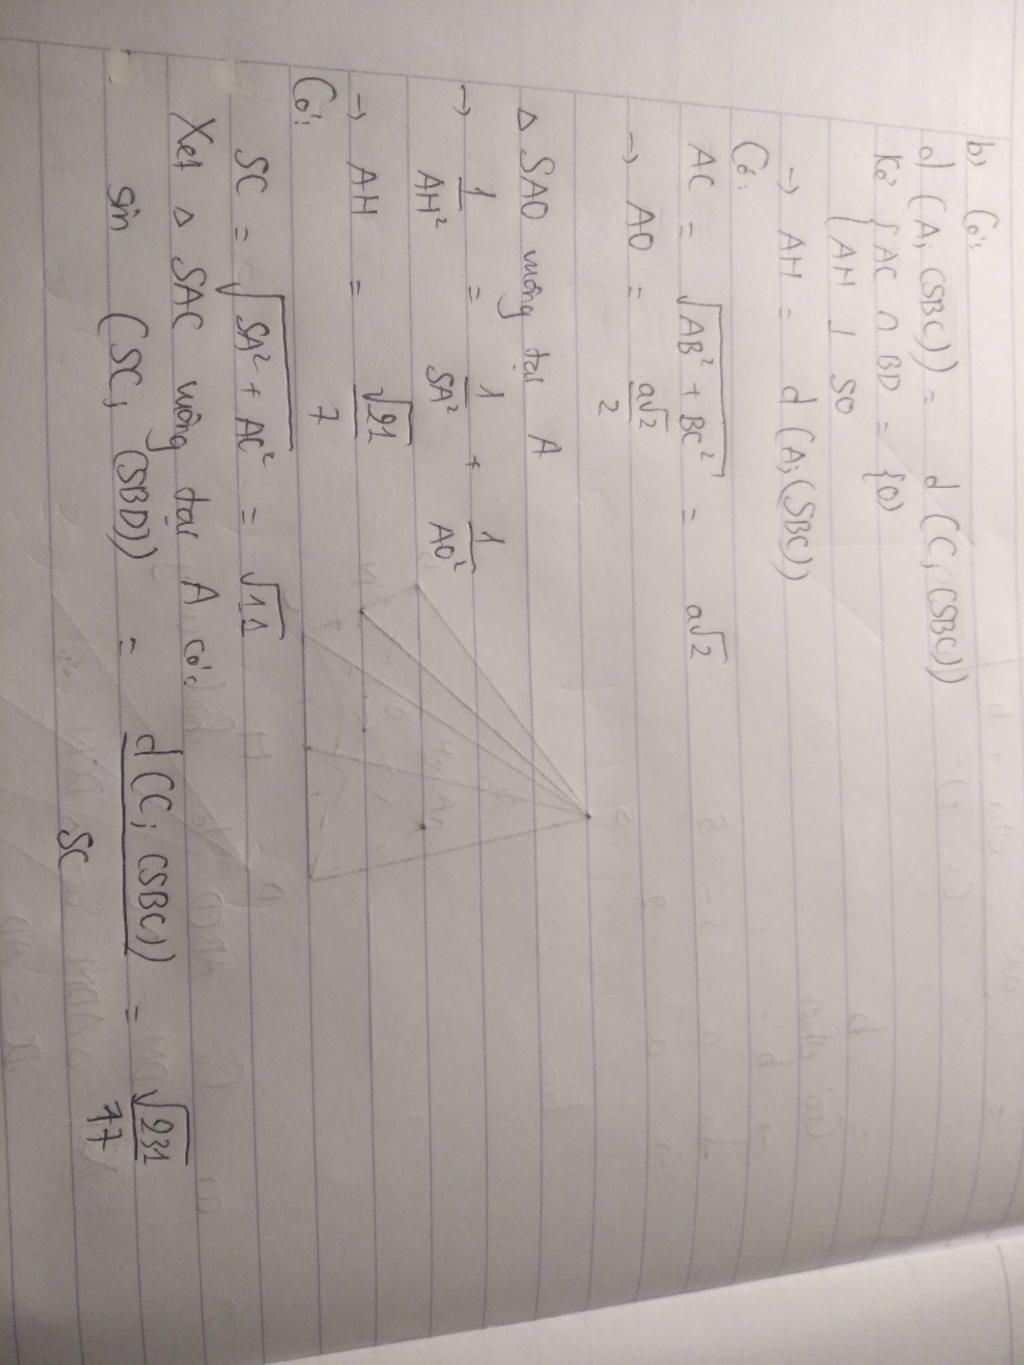 b) Có:
d (A; (SBC)) = d (C; (SBC))
Kẻ { AC ∩ BD = {O}
{ AH ⊥ SO
→ AH = d (A; (SBC))
Có:
AC = √AB² + BC² = a√2
→ AO = a√2/2
Δ SAO vuông tại A
→ 1/AH² = 1/SA² + 1/AO²
→ AH = √21/7
Có:
SC = √SA² + AC² = √11
Xét Δ SAC vuông tại A có:
sin (SC; (SBD)) = d (C; (SBC))/SC = √231/77